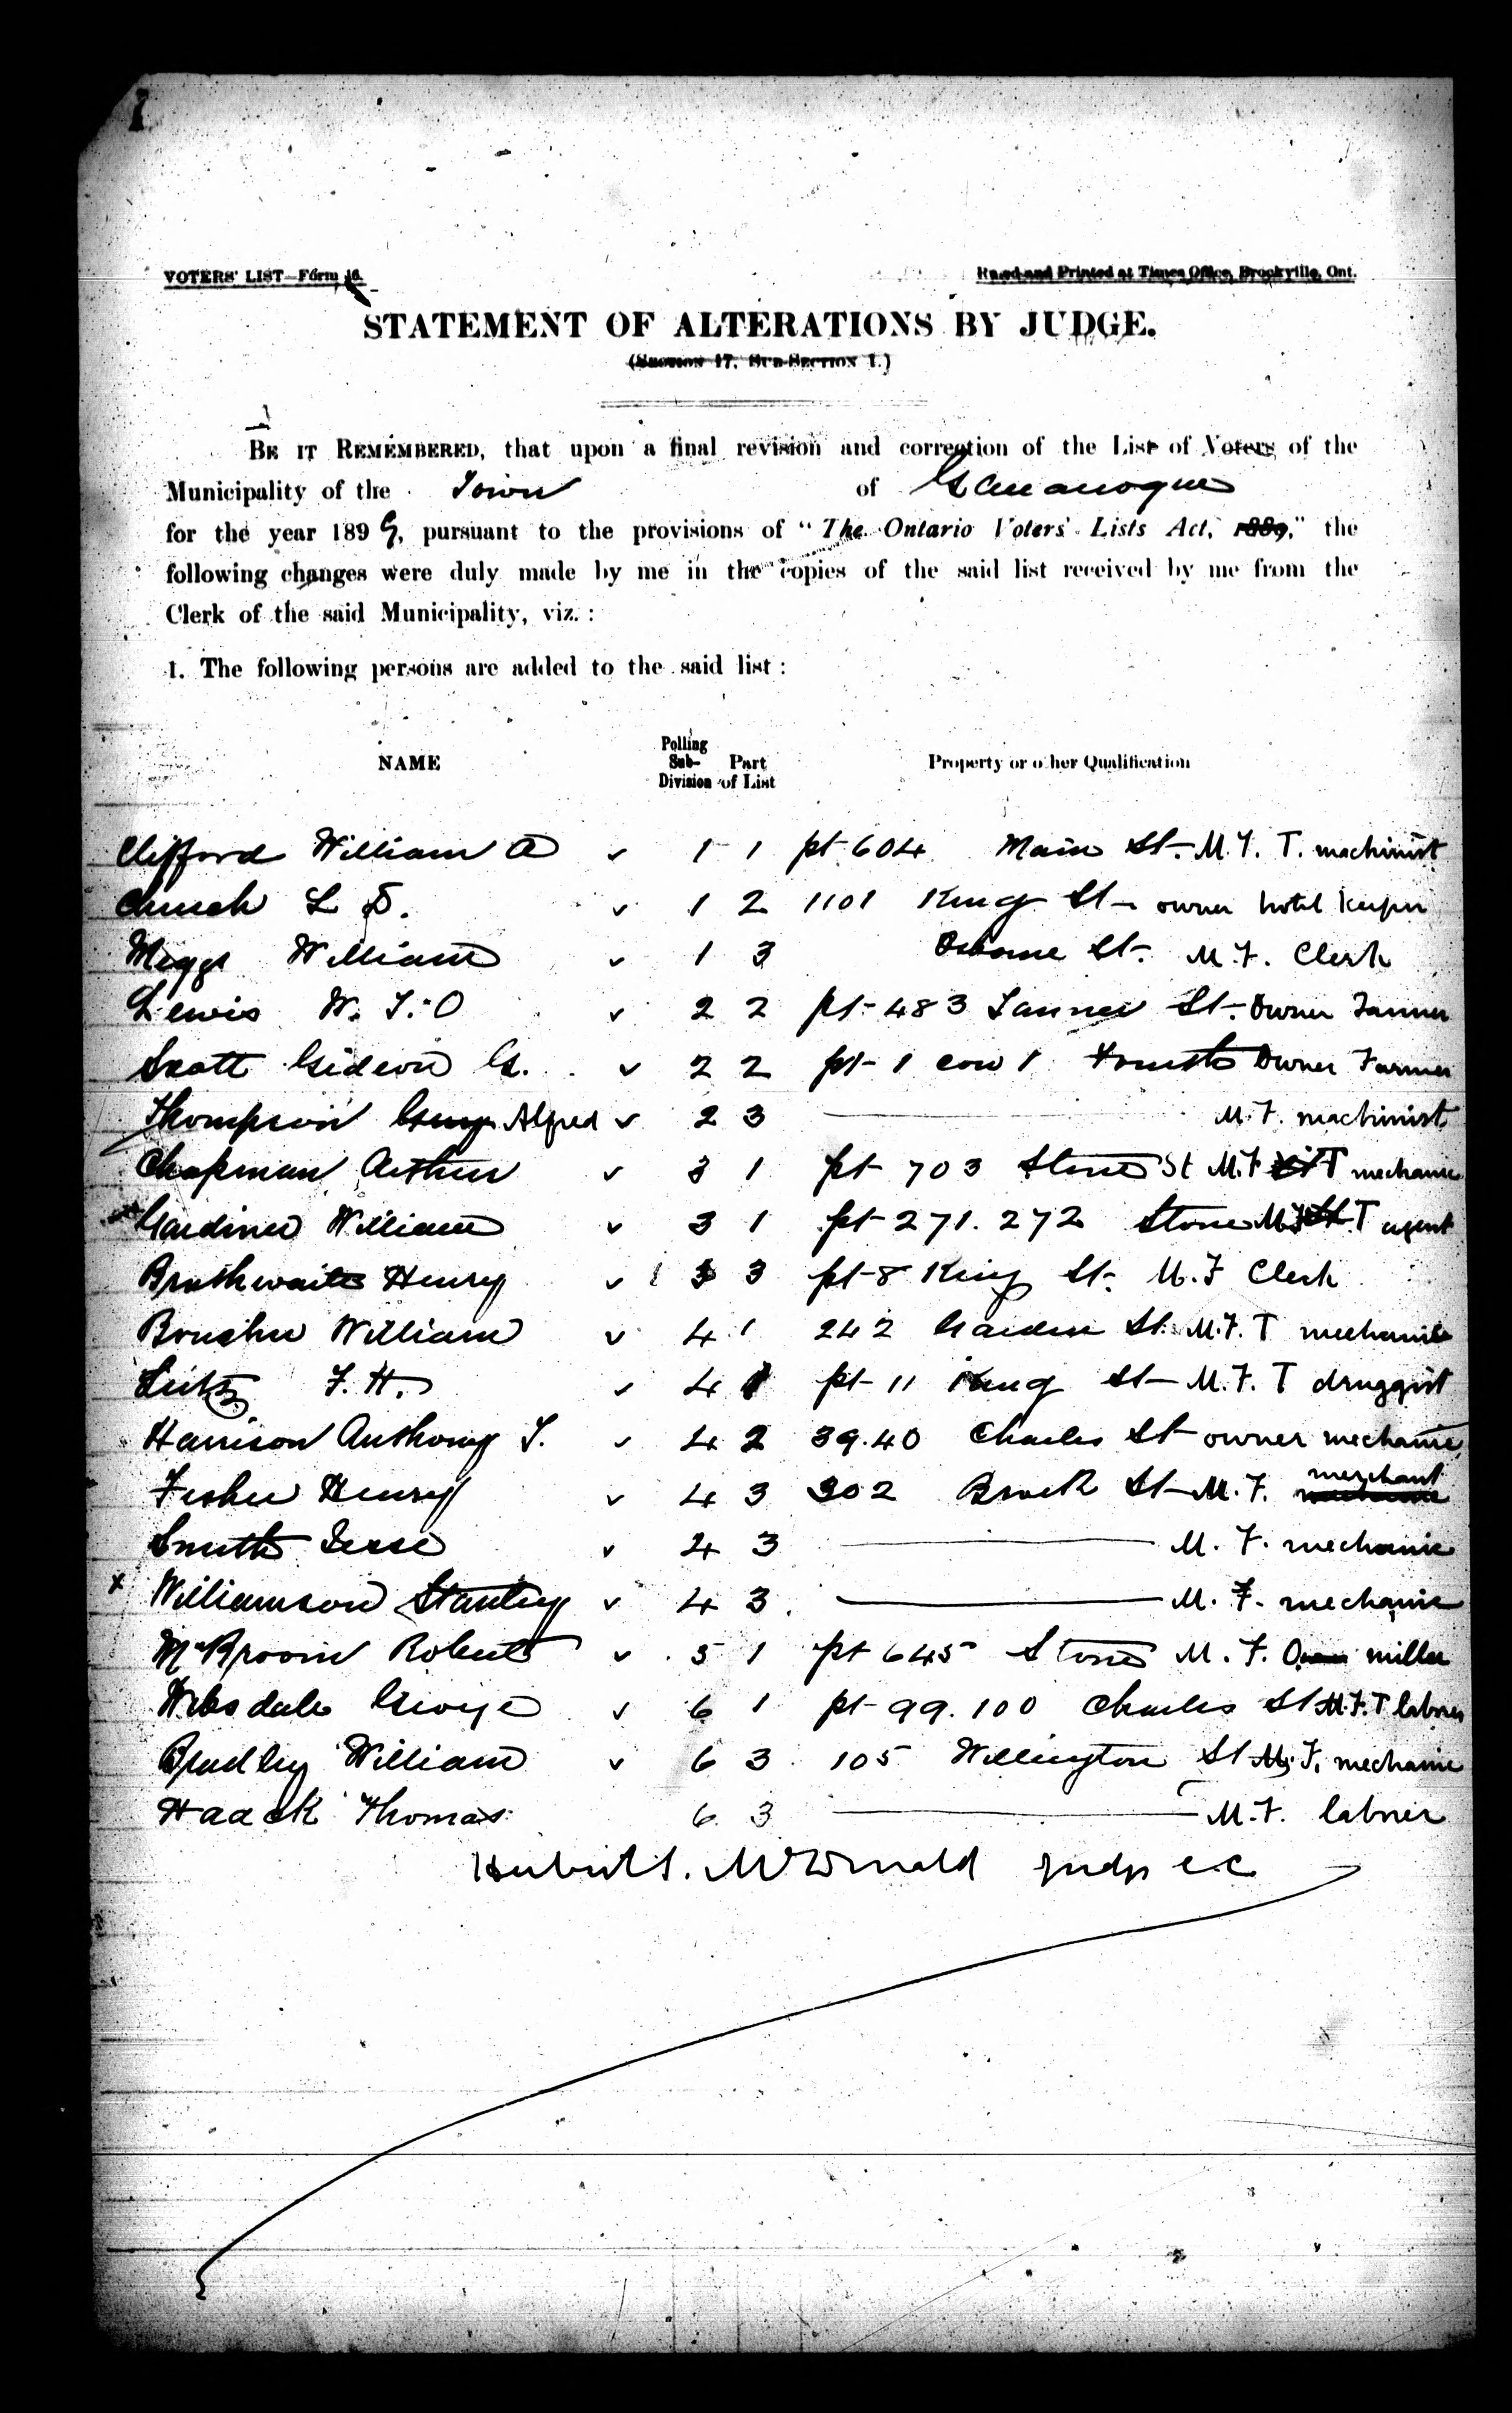 VOTERS' LIST—Form 16.
Ruled and Printed at Times Office, Brockville, Ont.
STATEMENT OF ALTERATIONS BY JUDGE.
(Section 17, Sub-Section 1.)
BE IT REMEMBERED, that upon a final revision and correction of the List of Voters of the
Municipality of the Town of Gananoque
for the year 1899, pursuant to the provisions of "The Ontario Voters' Lists Act, 1889," the
following changes were duly made by me in the copies of the said list received by me from the
Clerk of the said Municipality, viz. :
1. The following persons are added to the said list :
NAME Polling Sub-Division Part of List Property or other Qualification
Clifford William A v 1 1 pt 604 Main St. M. F. T. machinist
Church L D. v 1 2 1101 King St owner hotel keeper
Meggs William v 1 3 St. M. F. Clerk
Lewis W. J. O v 2 2 pt 483 Tanner St. Owner Tanner
Scott Gideon G. v 2 2 pt 1 con 1 Owner Farmer
Thompson Alfred v 2 3 M. F. machinist
Chapman Arthur v 3 1 pt 703 Stone St M.F T mechanic
Gardiner William v 3 1 pt 271. 272 Stone M.F T agent
Brathwaite Henry v 3 3 pt 8 King St. M.F Clerk
Boucher William v 4 1 242 Garden St. M.F. T mechanic
F. H. v 4 1 pt 11 King St M. F. T druggist
Harrison Anthony J. v 4 2 39.40 Charles St owner mechanic
Fisher Henry v 4 3 302 Brock St M. F. merchant
Smith Jesse v 4 3 M. F. mechanic
x Williamson Stanley v 4 3. M. F. mechanic
McBroom Robert v 5 1 pt 645 Stone M. F. miller
George v 6 1 pt 99. 100 Charles St M.F.T laborer
Bradley William v 6 3 105 Wellington St M.F. mechanic
Haack Thomas 6 3 M.F. laborer
Herbert S. McDonald Judge C.C